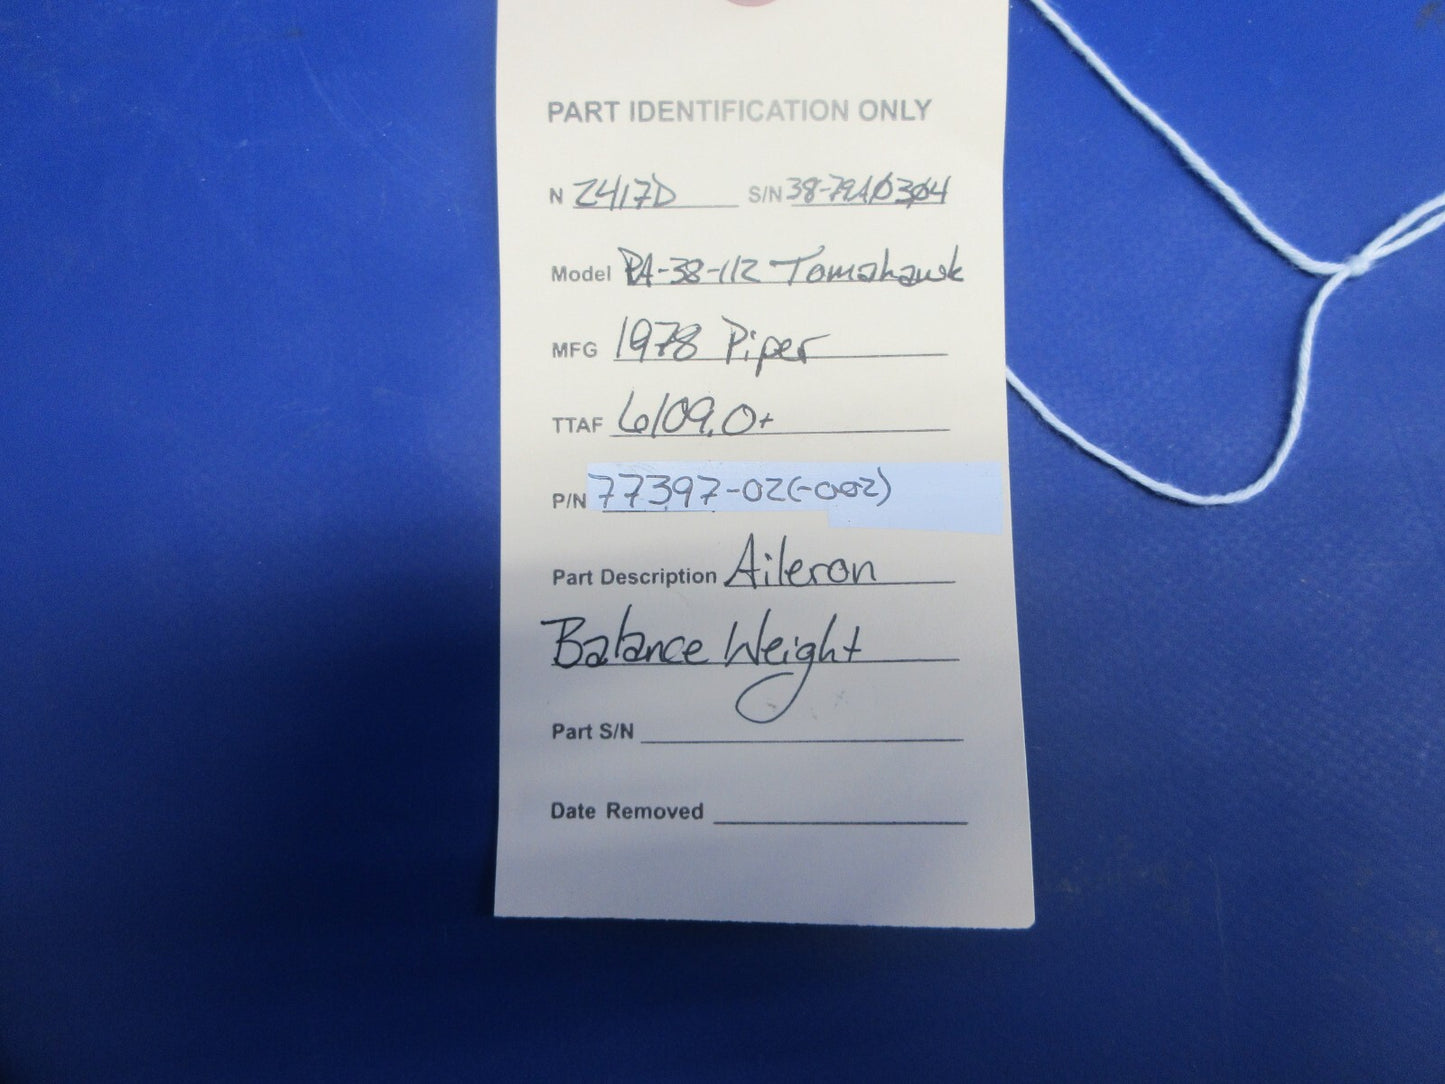 PART IDENTIFICATION ONLY
N 2417D S/N 38-79A0304
Model PA-38-112 Tomahawk
MFG 1978 Piper
TTAF 6109.0+
P/N 77397-02(-002)
Part Description Aileron
Balance Weight
Part S/N
Date Removed